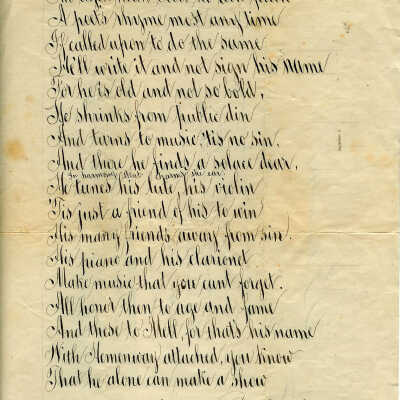 A poet's rhyme most any time
If called upon to do the same
He'll write it and not sign his name
For he's old and not so bold,
He shrinks from public din
And turns to music, 'tis no sin,
And there he finds a solace dear,
In harmony that charms the ear
He tunes his lute, his violin
'Tis just a friend of his to win
His many friends away from sin.
His piano and his clarionet
Make music that you cant forget.
All honor then to age and fame
And these to Mell, for that's his name
With Hemenway attached, you know
That he alone can make a show